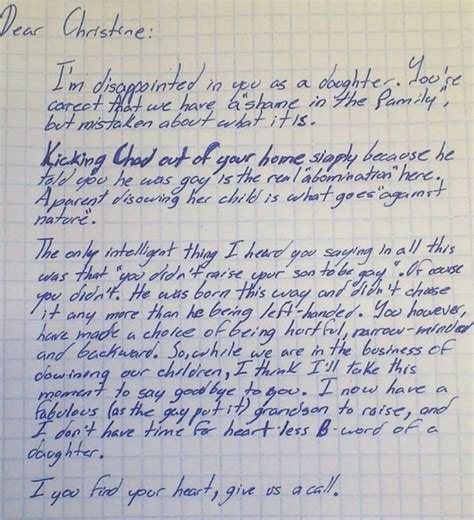 Dear Christine:
I'm disappointed in you as a daughter. You're
corect that we have a "shame in the family",
but mistaken about what it is.
Kicking Chad out of your home simply because he
told you he was gay is the real "abomination" here.
A parent disowing her child is what goes "against
nature".
The only intelligent thing I heard you saying in all this
was that "you didn't raise your son to be gay". Of couse
you didn't. He was born this way and didn't choose
it any more than he being left-handed. You however,
have made a choice of being hortful, narrow-minded
and backward. So, while we are in the business of
downing our children, I think I'll take this
moment to say goodbye to you. I now have a
fabulous (as the gay put it) grandson to raise, and
I don't have time for heart-less B-word of a
daughter.
I you find your heart, give us a call.